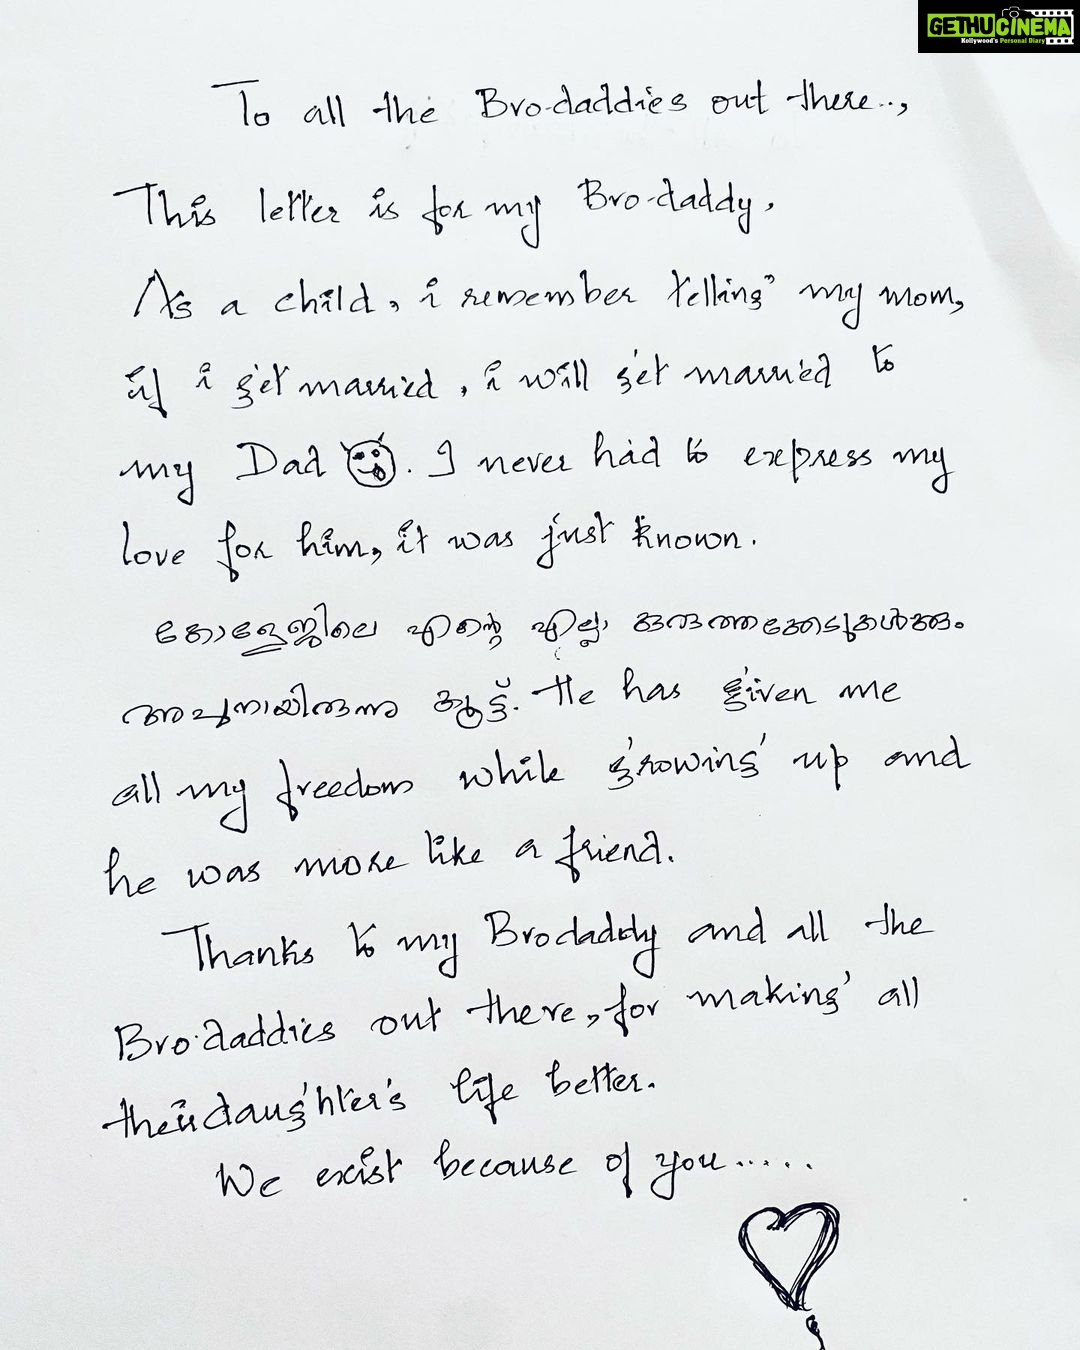 GETHU CINEMA
Kollywood's Personal Diary
To all the Bro-daddies out there..,
This letter is for my Bro-daddy,
As a child, i remember telling my mom,
if i get married, i will get married to
my Dad. I never had to express my
love for him, it was just known.
കോളേജിലെ എന്റെ എല്ലാ കുരുത്തക്കേടുകൾക്കും
അച്ഛനായിരുന്നു കൂട്ട്. He has given me
all my freedom while growing up and
he was more like a friend.
Thanks to my Brodaddy and all the
Bro-daddies out there, for making all
their daughter's life better.
We exist because of you.....